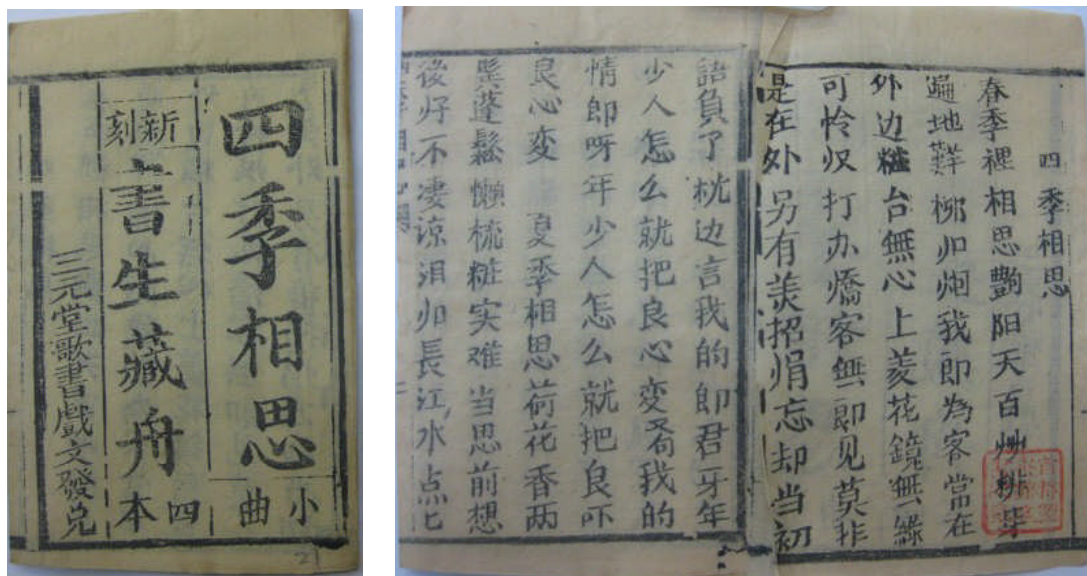 四季相思
小曲
新刻
書生藏舟
四本
三元堂歌書戲文發兌
四季相思
春季裡相思艷阳天百艸
遍地鲜柳如烟我郎為客常在
外边粧台無心上菱花鏡無緣
可怜奴打办嬌客無郎见莫非
是在外另有美招娟忘却当初
語負了枕边言我的郎君牙年
少人怎么就把良心变我的
情郎呀年少人怎么就把良
良心变 夏季相思荷花香两
鬓蓬鬆懒梳粧实难当思前想
後好不凄凉泪如長江水点